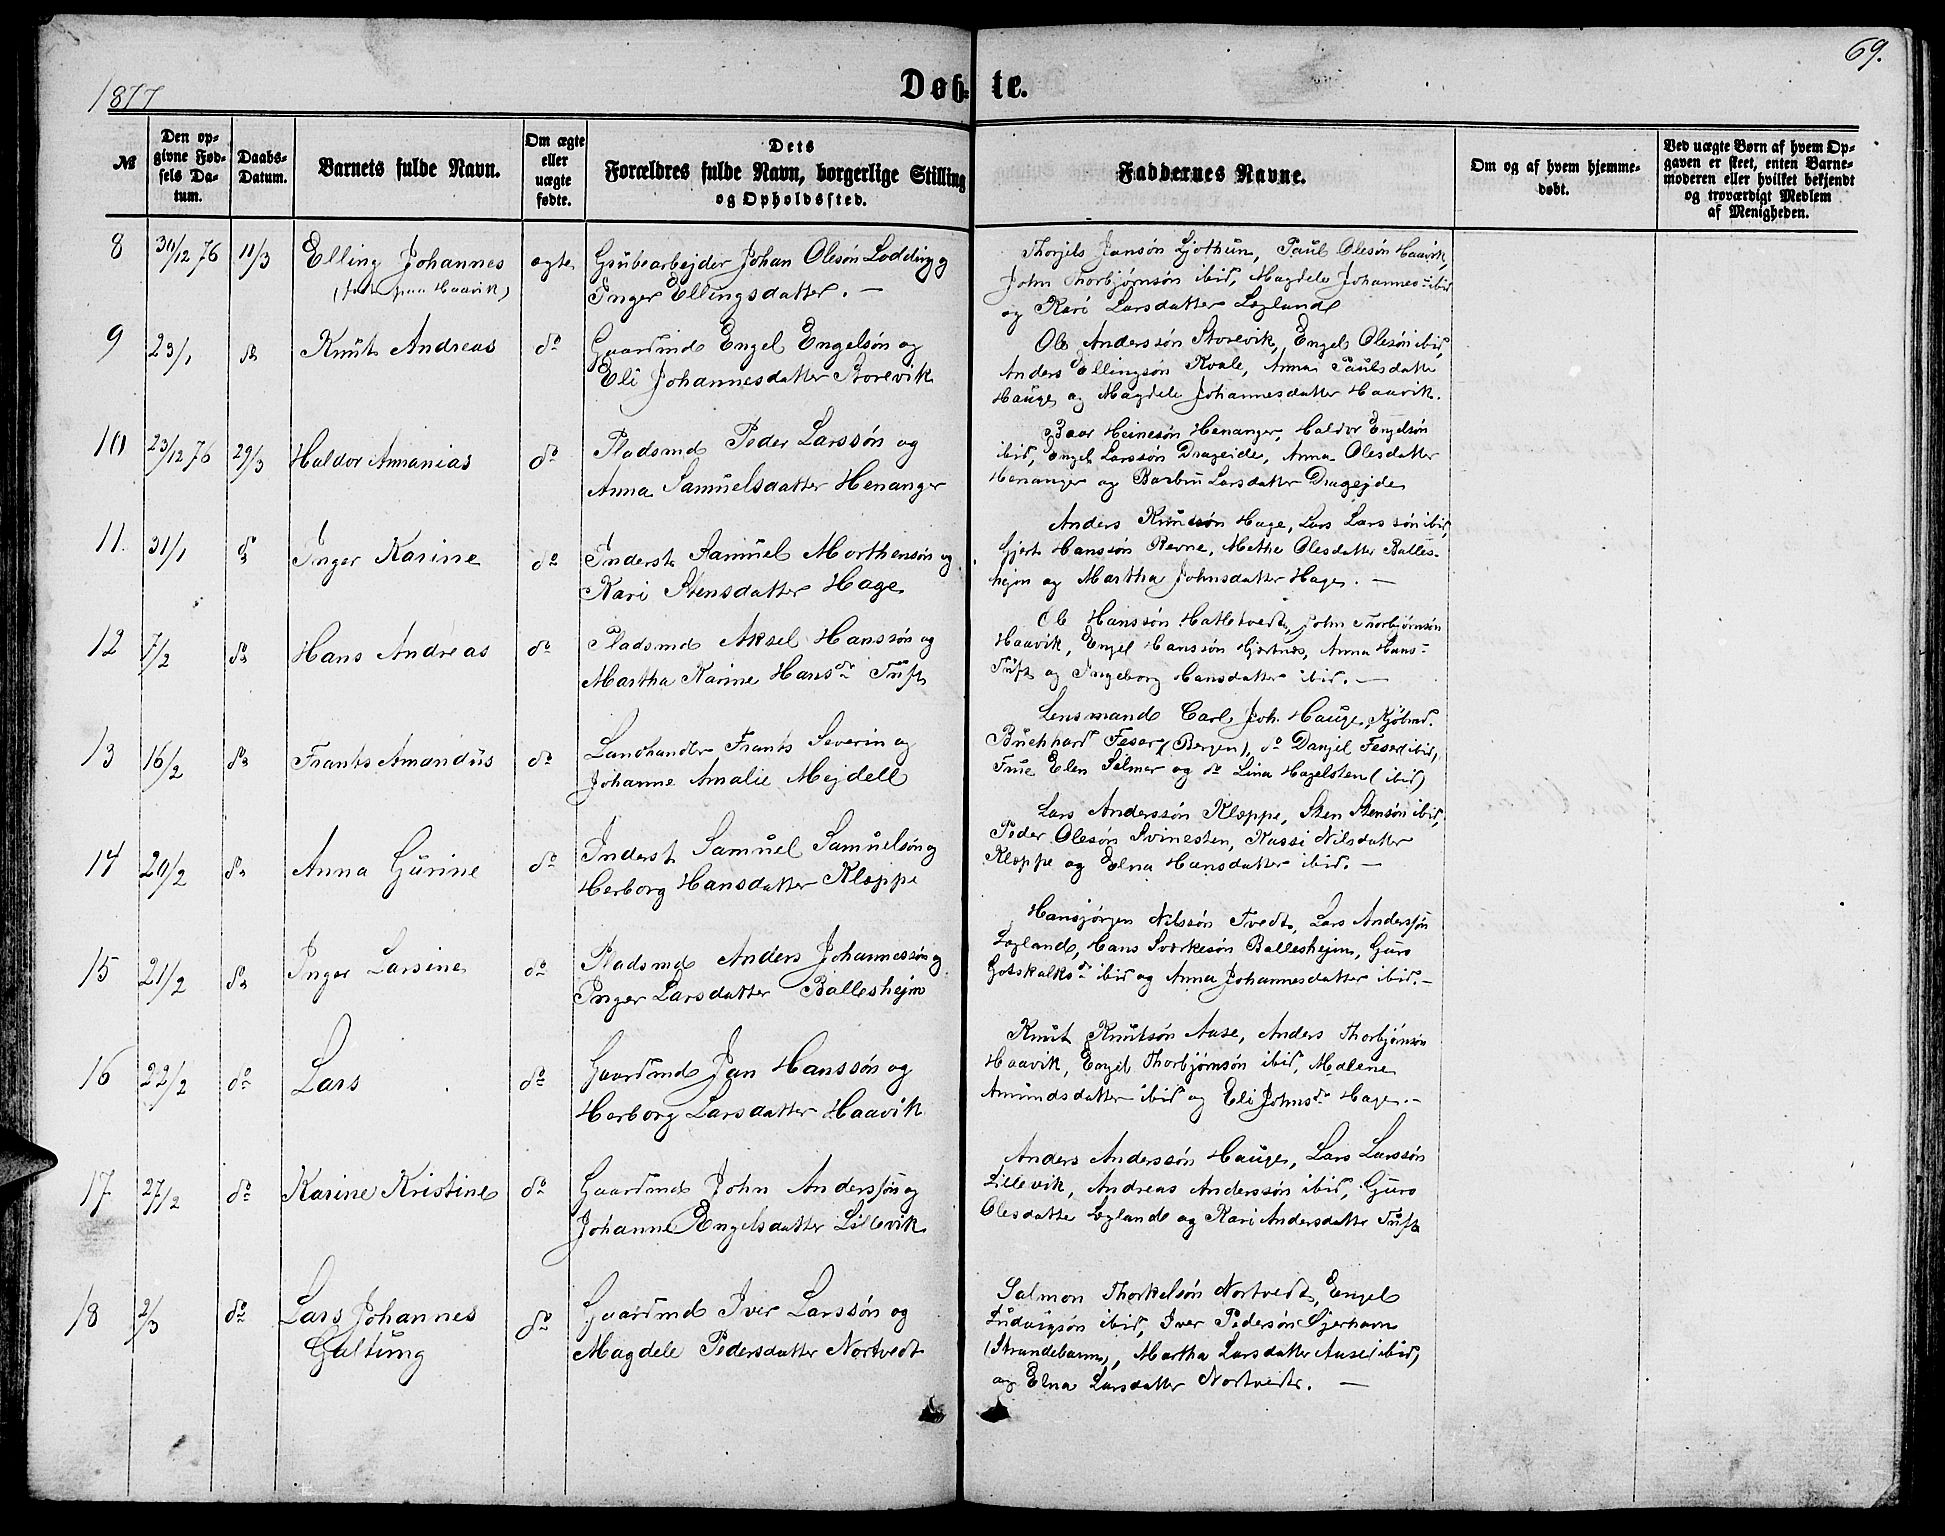 69.
1877
Døbte.
№
Den opgivne Fødsels Datum.
Daabs-Datum.
Barnets fulde Navn.
Om ægte eller uægte fødte.
Dets Forældres fulde Navn, borgerlige Stilling og Opholdssted.
Faddernes Navne.
Om og af hvem hjemmedøbt.
Ved uægte Børn af hvem Opgaven er skeet, enten Barnemoderen eller hvilket bekjendt og troværdigt Medlem af Menigheden.
8 30/12 76 11/3 Elling Johannes ægte Grubearbejder Johan Olesøn Lødding og
Inger Ellingsdatter. —
Thorjels Jansøn Ljothun, Paul Olesøn Haavik,
John Thorbjørnsøn ibid, Magdele Johannes- ibid
og Kari Larsdatter Løgland
9 23/1 do Knut Andreas do Gaardmd Engel Engelsøn og
Eli Johannesdatter Storevik
Ole Anderssøn Storevik, Engel Olesøn ibid,
Anders Ellingsøn Kvale, Anna Paulsdatter
Hauge og Magdele Johannesdatter Haavik.
10 23/12 76 29/3 Haldor Annanias do Pladsmd Peder Larssøn og
Anna Samuelsdatter Henanger
Baar Heinesøn Henanger, Haldor Engelsøn
ibid, Engel Larssøn Drageide, Anna Olesdatter
Henanger og Barbru Larsdatter Dragejde
11. 31/1 do Inger Karine do Inderst Samuel Morthensøn og
Kari Stensdatter Hage
Anders Knutsøn Hage, Lars Larssøn ibid,
Gjert Hanssøn Revne, Methe Olesdatter Balles-
hejm og Martha Johnsdatter Hage. —
12 7/2 do Hans Andreas do Pladsmd Aksel Hanssøn og
Martha Karine Hansdr Tuft
Ole Hanssøn Hatletvedt, John Thorbjørnsøn
Haavik, Engel Hanssøn Gjertnes, Anna Hans-
Tuft og Ingeborg Hansdatter ibid. —
13 16/2 do Frants Amandus do Landhandler Frants Severin og
Johanne Amalie Mejdell
Lensmand Carl Joh. Hauge, Kjøbmd.
Buchhard Feser (Bergen), do Danjel Feser (ibid),
Frue Elen Selmer og do Lina Hagelsten (ibid)
14 20/2 do Anna Gurine do Inderst Samuel Samuelsøn og
Herborg Hansdatter Kleppe
Lars Anderssøn Kleppe, Sten Stensøn ibid,
Peder Olesøn Svinesten, Kassi Nilsdatter
Kleppe og Elna Hansdatter ibid. —
15 21/2 do Inger Larsine do Pladsmd Anders Johannessøn og
Inger Larsdatter Balleshejm
Hansjørgen Nilssøn Tvedt, Lars Anderssøn
Løgland, Hans Sverkesøn Balleshejm, Guro
Gotskalksdr ibid og Anna Johannesdatter ibid. —
16 22/2 do Lars do Gaardmd Jan Hanssøn og
Herborg Larsdatter Haavik
Knut Knutsøn Aase, Anders Thorbjørnsøn
Haavik, Engel Thorbjørnsøn ibid, Malene
Amundsdatter ibid og Eli Johnsdr Hage. —
17. 27/2 do Karine Kristine do Gaardmd John Anderssøn og
Johanne Engelsdatter Lillevik
Anders Anderssøn Hauge, Lars Larssøn
Lillevik, Andreas Anderssøn ibid, Guro
Olesdatter Løgland og Kari Andersdatter Tuft
18 2/3 do Lars Johannes
Galtung do Gaardmd Iver Larssøn og
Magdele Pedersdatter Nortvedt
Salmon Thorkelsøn Nortvedt, Engel
Ludvigsøn ibid, Iver Pedersøn Ljerhavn
(Strandebarm), Martha Larsdatter Aase (ibid)
og Elna Larsdatter Nortvedt. —